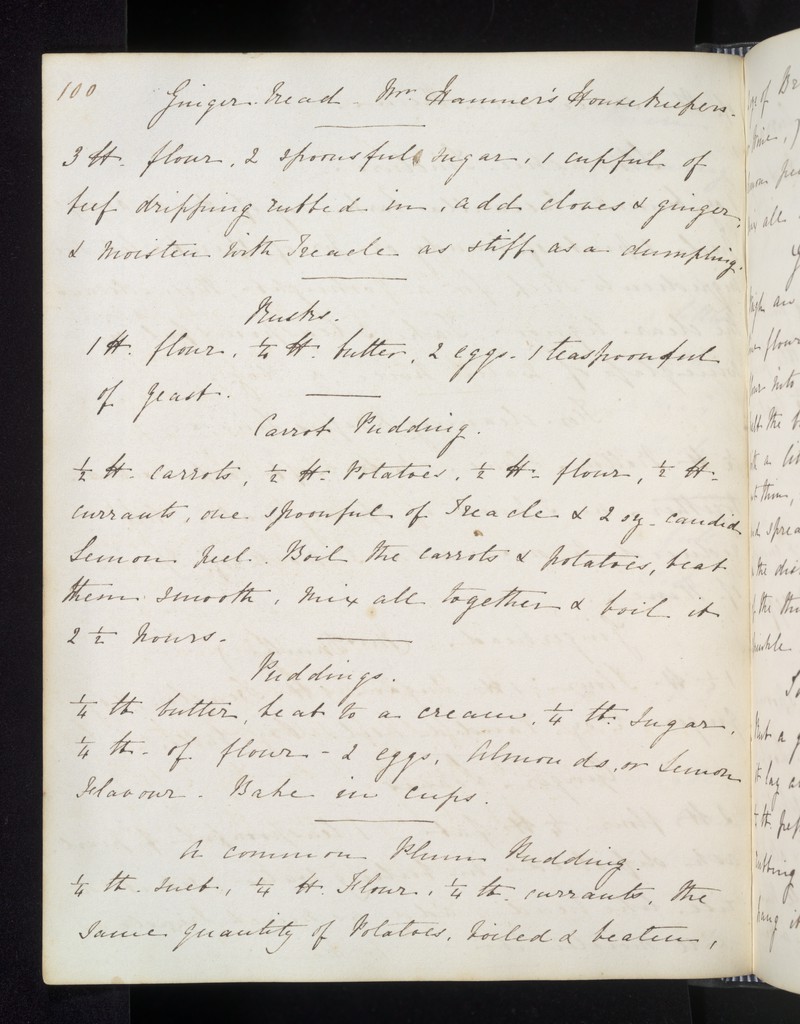 100
Ginger bread - Mr. Hanmer's Housekeepers.
3 lb. flour, 2 spoonsful sugar, 1 cupful of
beef dripping rubbed in, add cloves & ginger,
& moisten with Treacle as stiff as a dumpling.
Rusks.
1 lb. flour, ¼ lb. butter, 2 eggs - 1 teaspoonful
of yeast.
Carrot Pudding.
½ lb. carrots, ½ lb. Potatoes, ½ lb. flour, ½ lb.
currants, one spoonful of Treacle & 2 oz. candid
Lemon peel. Boil the carrots & potatoes, beat
them smooth, mix all together & boil it
2 ½ hours.
Puddings.
¼ lb butter, beat to a cream, ¼ lb. Sugar,
¼ lb. of flour - 2 eggs, Almonds, or Lemon
Flavour - Bake in cups.
A common Plum Pudding.
¼ lb. suet, ¼ lb Flour, ¼ lb. currants, the
same quantity of Potatoes, boiled & beaten,